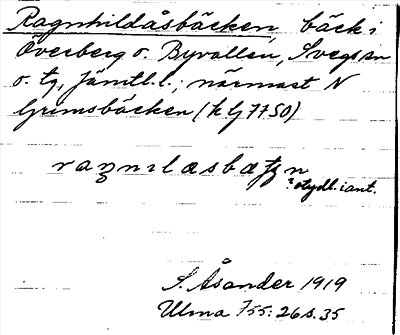 Ragnhildåsbäcken, bäck i
Överberg o. Byvallen, Svegs sn
o. tg, Jämtl. l.; närmast N
Grimsbäcken (kG7750)
otydl. i ant.
S. Åsander 1919
Ulma 755: 26 s. 35